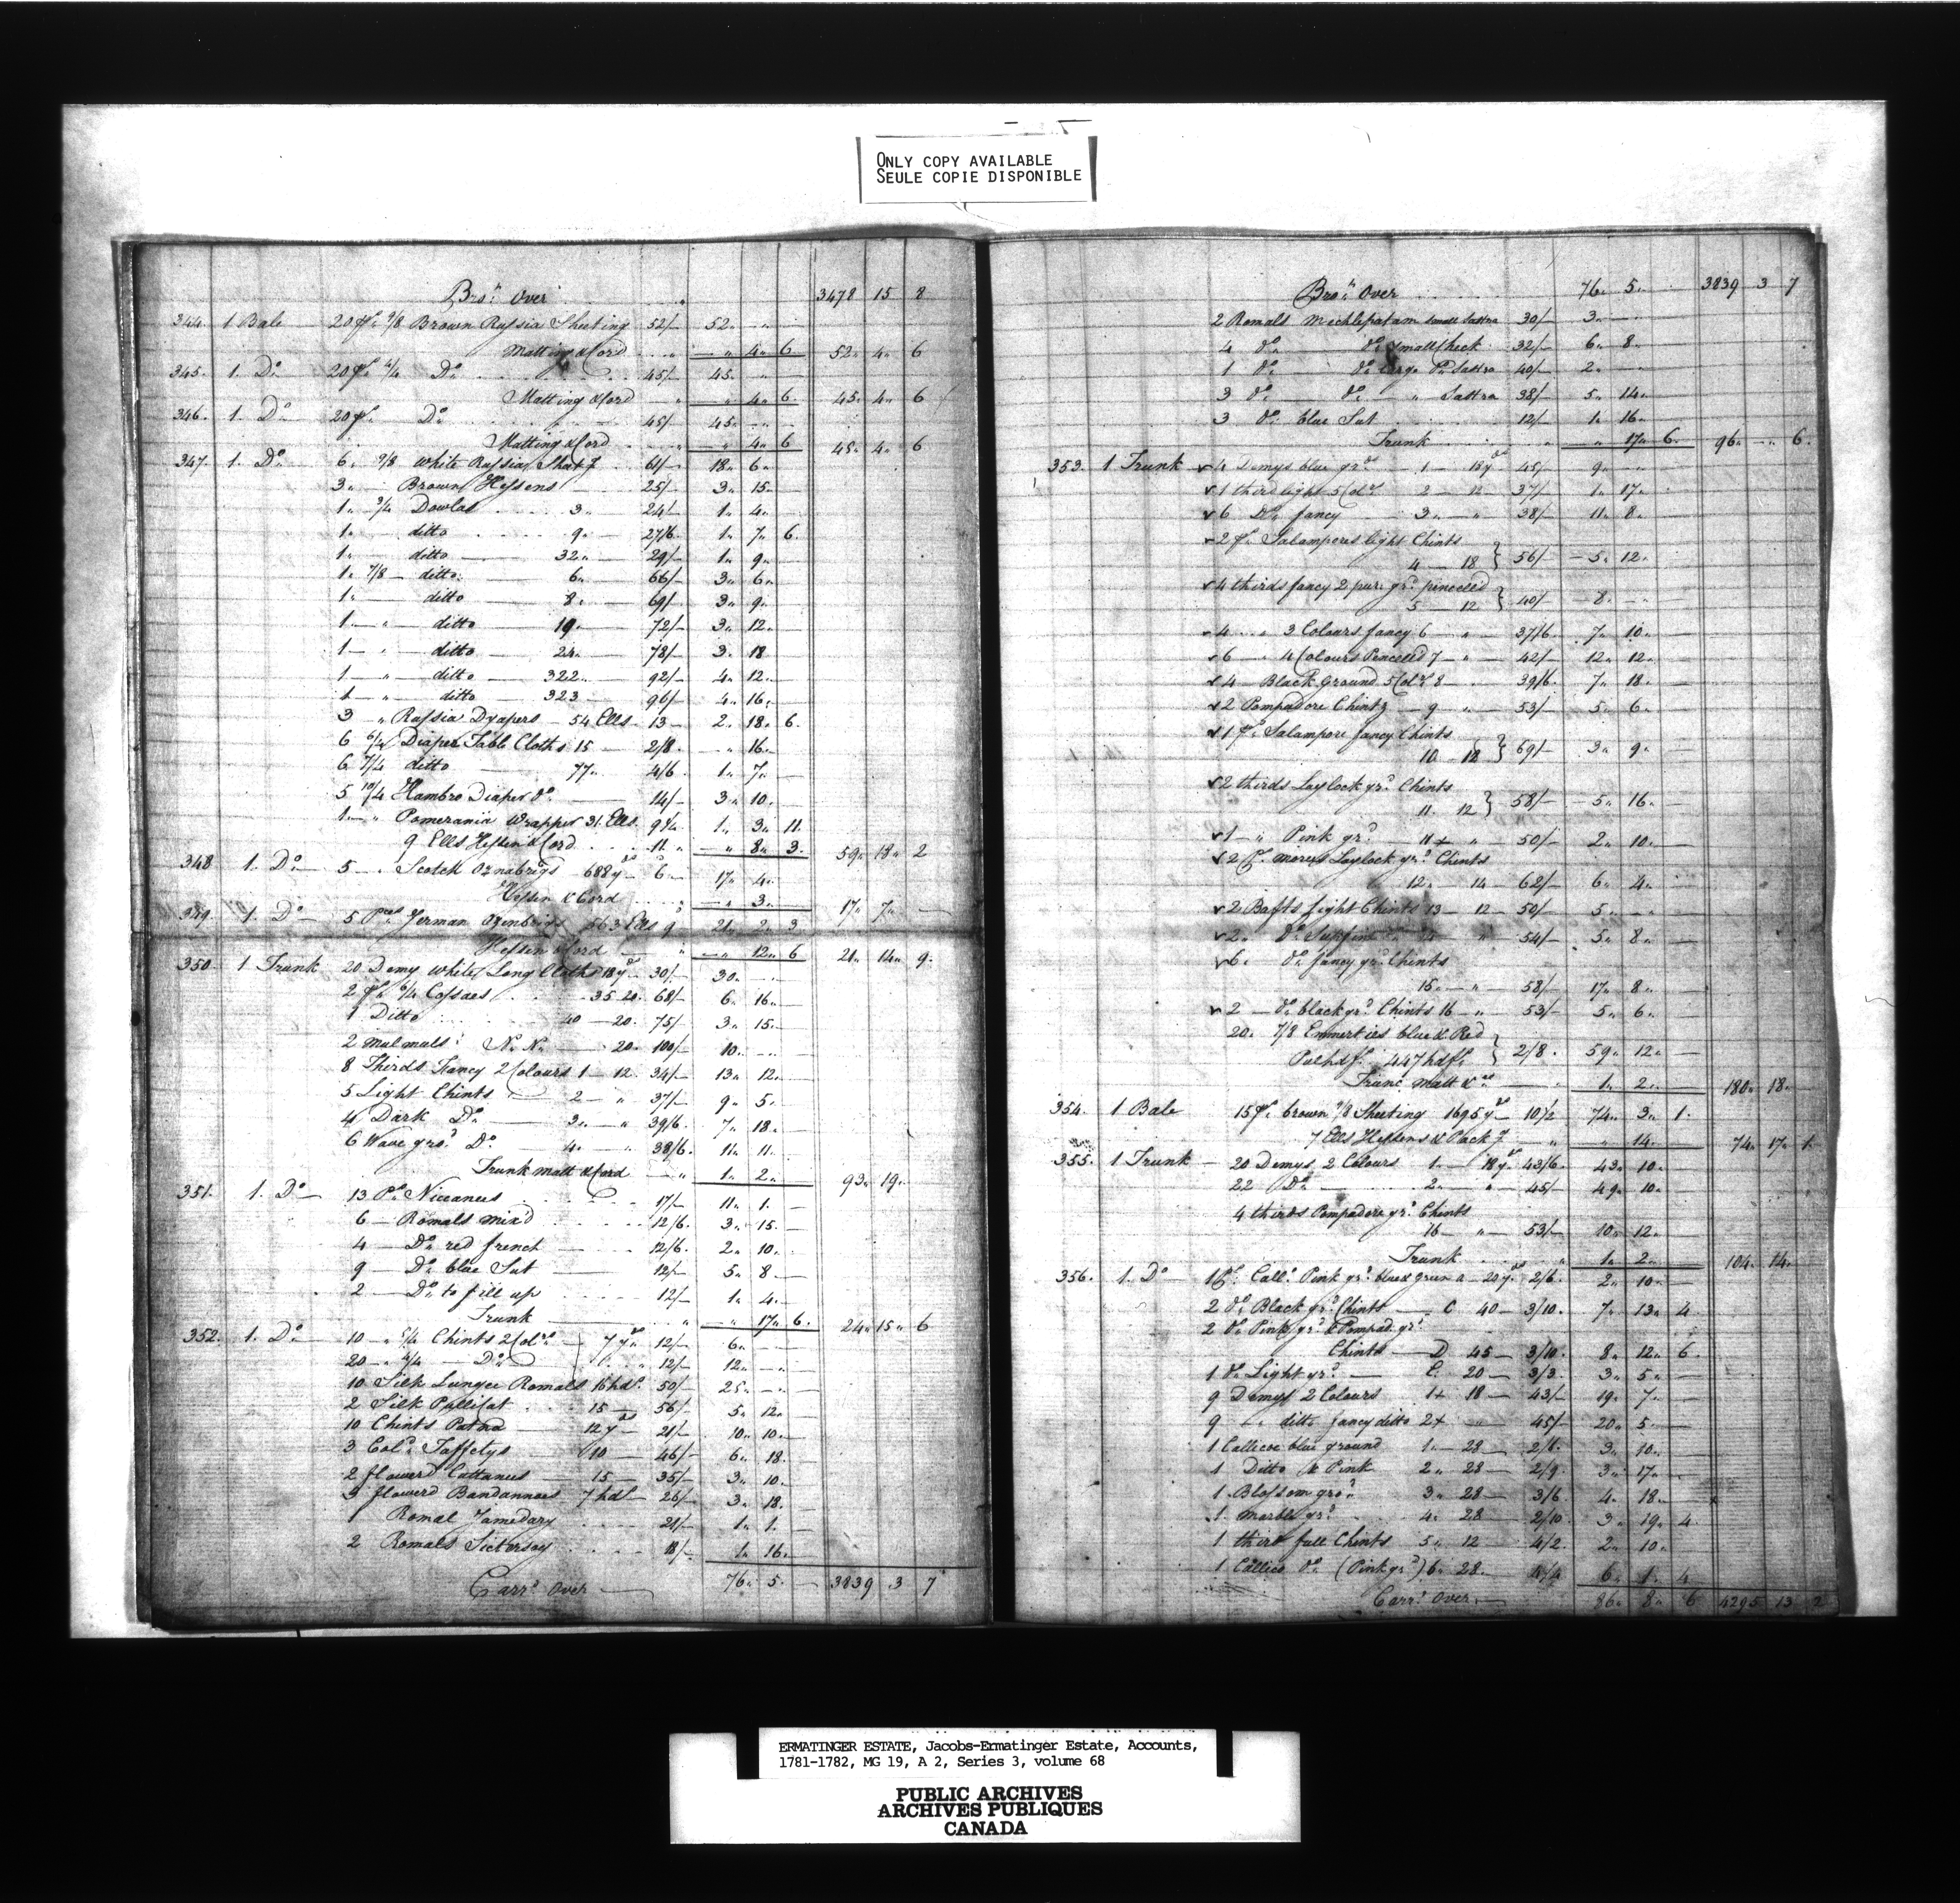 ONLY COPY AVAILABLE
SEULE COPIE DISPONIBLE
Bro.t Over 3478 15 8
344. 1 Bale 20 ps 9/8 Brown Russia Sheeting 52/- 52 " —
Matting & Cord — " 4 " 6 52 " 4 " 6
345. 1. Do 20 ps 4/4 Do 45/- 45 " —
Matting & Cord " 4 " 6 45 " 4 " 6
346. 1. Do 20 ps Do 45/ 45 " —
Matting & Cord — " 4 " 6 45 " 4 " 6
347. 1. Do 6 " 9/8 White Russia Sheetg 61/- 18 " 6 " —
3 " Brown Hessens 25/- 3 " 15 —
1 " 3/4 Dowlas 3 " 24/- 1 " 4 " —
1 " ditto 9 " 27/6 1 " 7 " 6
1 " ditto 32 " 29/- 1 " 9 " —
1 " 7/8 ditto 6 " 66/- 3 " 6 " —
1 " ditto 8 " 69/- 3 " 9 " —
1 " ditto 19 " 72/- 3 " 12 " —
1 " ditto 24 " 78/- 3 " 18
1 " ditto 322 " 92/- 4 " 12 " —
1 " ditto 323 96/- 4 " 16 " —
3 " Russia Dyapers 54 Ells 13 — 2 " 18 " 6
6 6/4 Diaper Table Cloths 15 2/8 — " 16 " —
6 7/4 ditto 77 " 4/6 1 " 7 " —
5 10/4 Hambro Diaper do 14/- 3 " 10 " —
1 " Pomerania Wrapper 31 Ells 9 1/4 1 " 3 " 11
9 Ells Hessen & Cord 11 " — " 8 " 3 59 " 18 " 2
348 1. Do 5 " Scotch Oznabrigs 688 yds 6 " 17 " 4 " —
Hessen & Cord — " 3 " — 17 " 7 " —
349. 1. Do 5 Pces German Ozinbrigs 563 Ells 9 21 " 2 " 3
Hessen & Cord — " 12 " 6 21 " 14 " 9
350. 1 Trunk 20 Demy White Long Cloths 18 yds 30/- 30 " —
2 ps 6/4 Cossaes 35 20 68/- 6 " 16 " —
1 Ditto 40 — 20 75/- 3 " 15 " —
2 Mulmuls No No 20 100/- 10 " —
8 Thirds Fancy 2 Colours 1 — 12 34/- 13 " 12 " —
5 Light Chints 2 — " 37/- 9 " 5 " —
4 Dark Do 3 " " 39/6 7 " 18 " —
6 Wave grod Do 4 " " 38/6 11 " 11 " —
Trunk Matt & Cord " 1 " 2 " — 93 " 19 " —
351. 1. Do 13 Ps Niccanees 17/- 11 " 1 " —
6 — Romals mix'd 12/6 3 " 15 —
4 — Do red french 12/6 2 " 10 " —
9 — Do blue Sut 12/- 5 " 8 " —
2 — Do to fill up 12/- 1 " 4 " —
Trunk " — " 17 " 6 24 " 15 " 6
352. 1. Do 10 " 5/4 Chints 2 Cold 7 yds 12/- 6 " —
20 " 4/4 — Do 12/- 12 " —
10 Silk Lungee Romals 16 hds 50/- 25 " —
2 Silk Pullicat 15 — 56/- 5 " 12 " —
10 Chints Patna 12 yds 21/- 10 " 10 " —
3 Cold Taffetys 10 — 46/- 6 " 18 " —
2 flowerd Cuttanees 15 — 35/- 3 " 10 " —
3 flowerd Bandannoes 7 hds 26/- 3 " 18 " —
1 Romal Jamedary 21/- 1 " 1 " —
2 Romals Sictersoy 18/- 1 " 16 " —
Carrd Over 76 " 5 " — 3839 3 7
Bro.t Over 76 " 5 " 3839 3 7
2 Romals Mechlepatam small Sastra 30/- 3 " —
4 do do small Check 32/- 6 " 8 "
1 do do large Do Sastra 40/- 2 " —
3 do do " Sastra 38/- 5 " 14 "
3 do blue Sut 12/- 1 " 16 "
Trunk " " 17 " 6 96 " — 6
353. 1 Trunk 4 Demys blue grds 1 — 18 yds 45/- 9 " —
1 third light 5 Cols 2 — 12 37/ 1 " 17 "
6 Do fancy 3 " " 38/- 11 " 8 " —
2 ps Salampores light Chints
4 — 18 56/- 5 " 12 " —
4 thirds fancy 2 pur: grd penceled
5 — 12 40/- 8 " —
4 " 3 Colours fancy 6 " 37/6 7 " 10 " —
6 " 4 Colours Penceled 7 " 42/- 12 " 12 " —
4 Black Ground 5 Cols 8 " 39/6 7 " 18 " —
2 Pompadore Chints 9 " 53/- 5 " 6 " —
1 ps Salampore fancy Chints
10 — 18 69/- 3 " 9 " —
2 thirds Laylock grd Chints
11. 12 58/- 5 " 16 " —
1 " Pink grd 11 + " 50/- 2 " 10 " —
2 ps Morees Laylock grd Chints
12 " 14 62/- 6 " 4 " —
2 Bafts light Chints 13 — 12 50/- 5 " —
2 " Do Supfine 54/- 5 " 8 " —
6 " do fancy grd Chints
15 " " 58/- 17 " 8 " —
2 — do black grd Chints 16 — " 53/- 5 " 6 " —
20 " 7/8 Emmerties blue & Red
447 hdfs 2/8 59 " 12 " —
Trunc Matt &ca 1 " 2 " — 180 " 18 "
354. 1 Bale 15 ps brown 9/8 Sheeting 1695 yds 10 1/2 74 " 3 " 1
7 Ells Hessens & Packg " " 14 " 74 " 17 " 1
355. 1 Trunk 20 Demys 2 Colours 1 — 18 yds 43/6 43 " 10 " —
22 Do 2 " " 45/ 49 " 10 " —
4 thirds Pompadore grd Chints
16 " 53/- 10 " 12 " —
Trunk 1 " 2 " — 104 " 14 "
356. 1. Do 1 ps Calle Pink grd blue & green A 20 yds 2/6 2 " 10 " —
2 do Black grd Chints C 40 — 3/10 7 " 13 " 4
2 do Pink grd & Pompad. grd
Chints — D 45 — 3/10 8 " 12 " 6
1 do Light grd E. 20 — 3/3 3 " 5 " —
9 Demys 2 Colours 1+ 18 — 43/- 19 " 7 " —
9 " ditto fancy ditto 2+ " 45/ 20 " 5 " —
1 Callicoe blue ground 1 " 28 2/6 3 " 10 "
1 Ditto & Pink 2 " 28 2/9 3 " 17 "
1 Blossom grod 3 " 28 3/6 4 " 18 "
1 Marble grd 4 " 28 2/10 3 " 19 " 4
1 third full Chints 5 " 12 4/2 2 " 10 "
1 Callico do (Pink grd) 6 " 28 4/4 6 " 1 " 4
Carrd Over 86 " 8 " 6 4295 13 2
ERMATINGER ESTATE, Jacobs-Ermatinger Estate, Accounts,
1781-1782, MG 19, A 2, Series 3, volume 68
PUBLIC ARCHIVES
ARCHIVES PUBLIQUES
CANADA